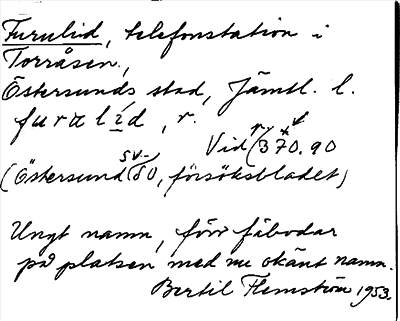 Furulid, telefonstation i
Torråsen,
Östersunds stad, Jämtl. l.
furalid, r.
Vid 370.90
(Östersund SV 60, försöksbladet)
Ungt namn, förr fäbodar
på platsen med nu okänt namn.
Bertil Flemström 1953.